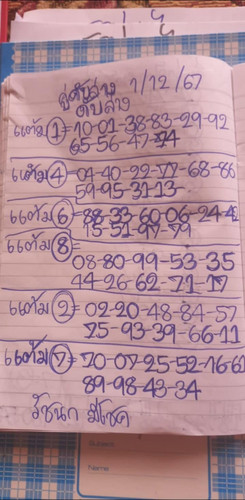 คู่คี่บน/ล่าง 1/12/67
ดับล่าง
แต้ม 1 = 10-01-38-83-29-92
65-56-47-74
แต้ม 4 = 04-40-22-77-68-86
59-95-31-13
แต้ม 6 = 88-33-60-06-24-42
15-51-97-79
แต้ม 8 =
08-80-99-53-35
44-26-62-71-17
แต้ม 2 = 02-20-48-84-57
75-93-39-66-11
แต้ม 7 = 70-07-25-52-16-61
89-98-43-34
รัชนก มีโชค
Subject
Name